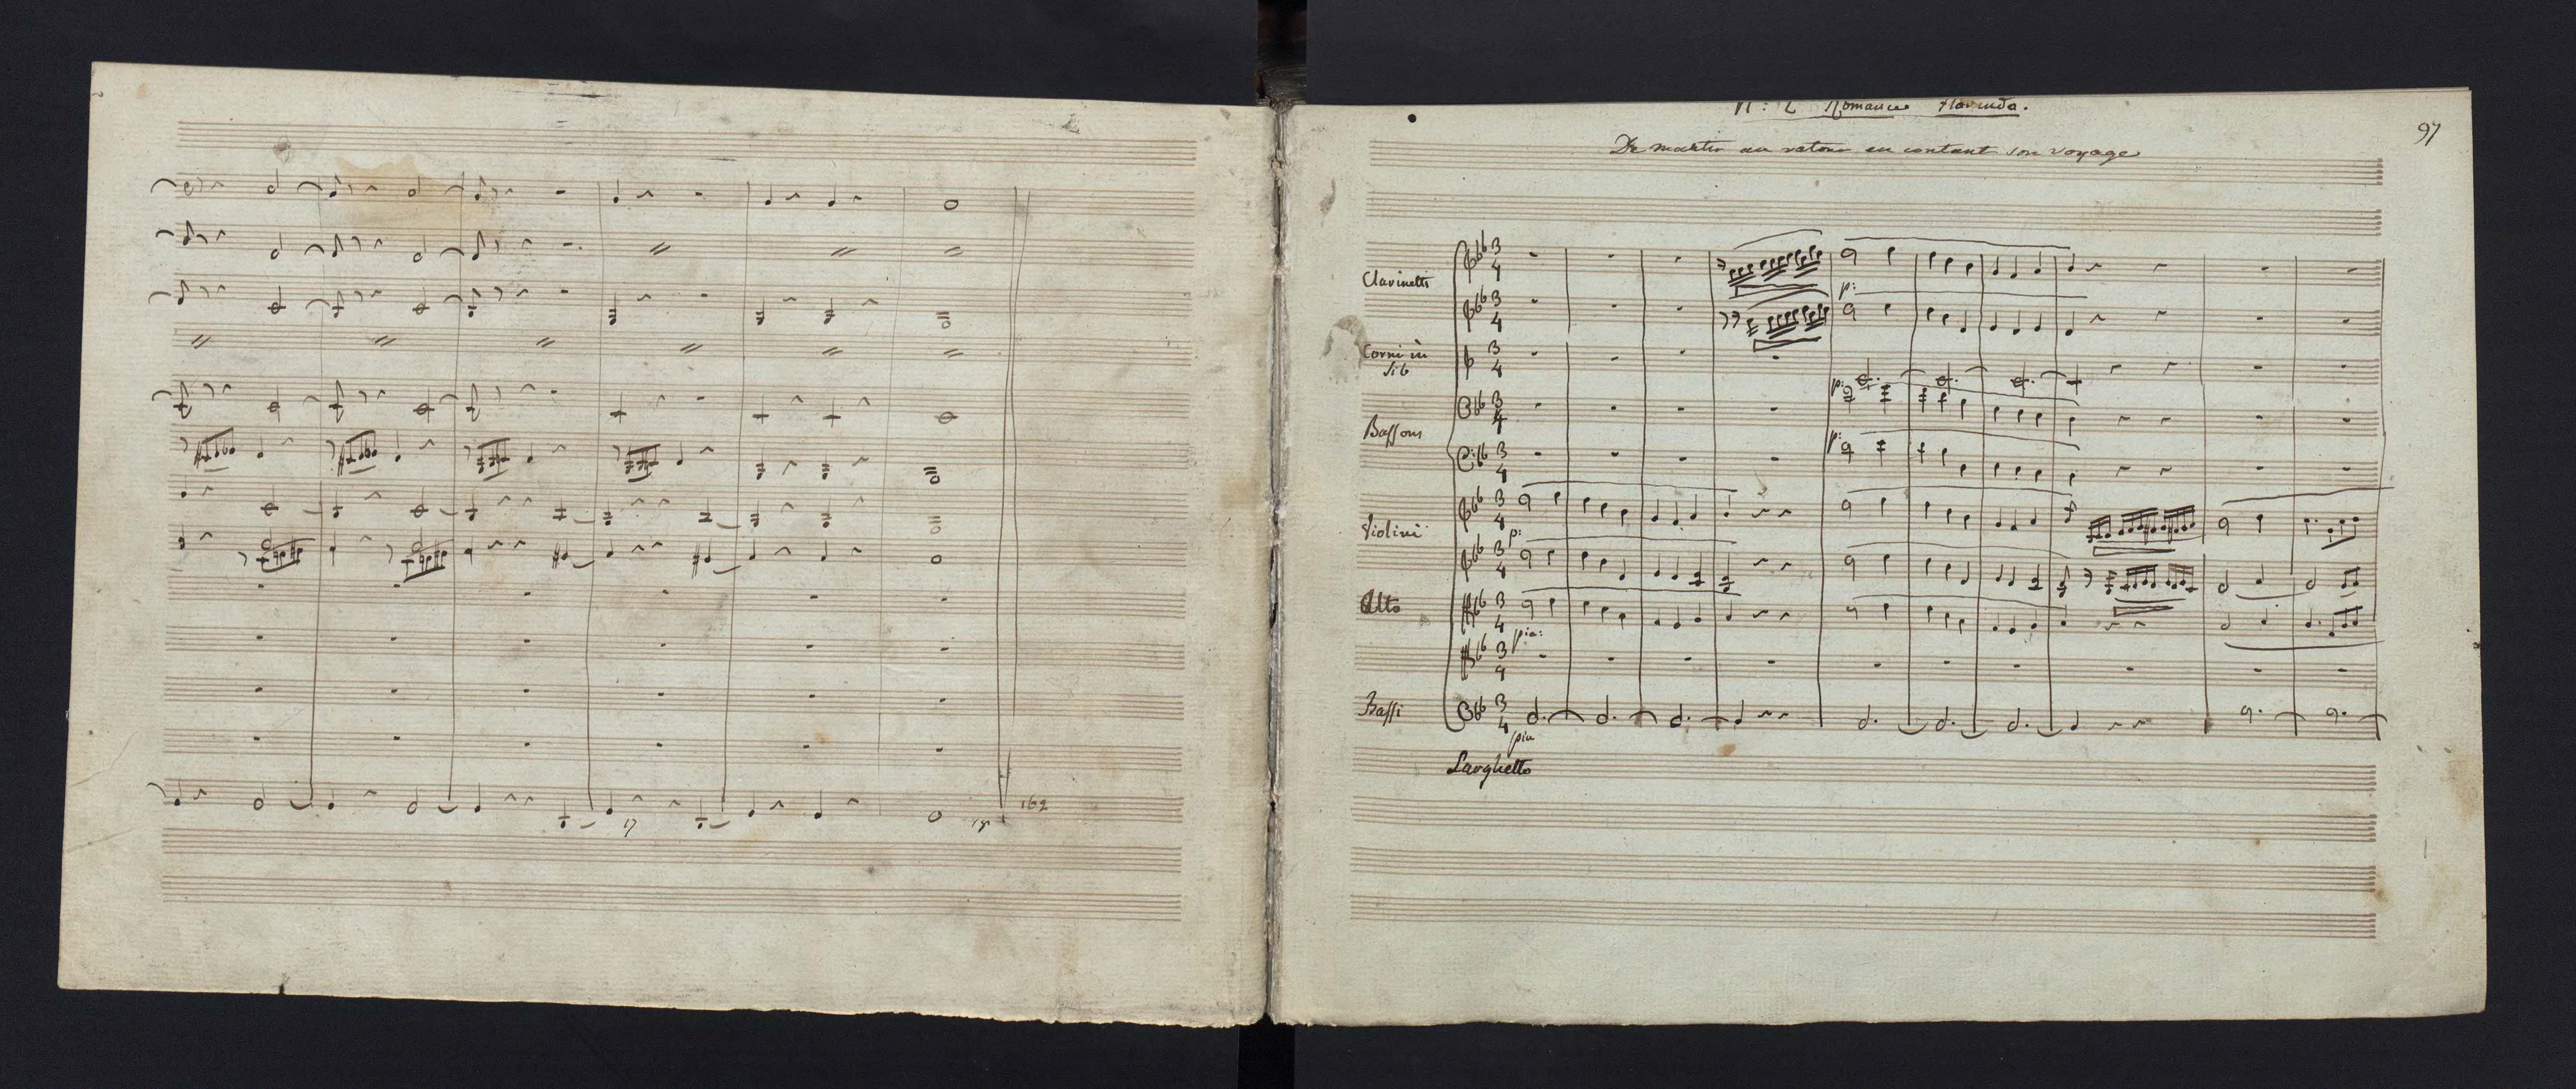 17
18
162
N: 2 Romance Florinda.
97
De martin au retour en contant son voyage
Clarinetti
p:
Corni in
Sib
p:
Bassoni
p:
Violini
p:
Alto
pia:
Bassi
pia
Larghetto